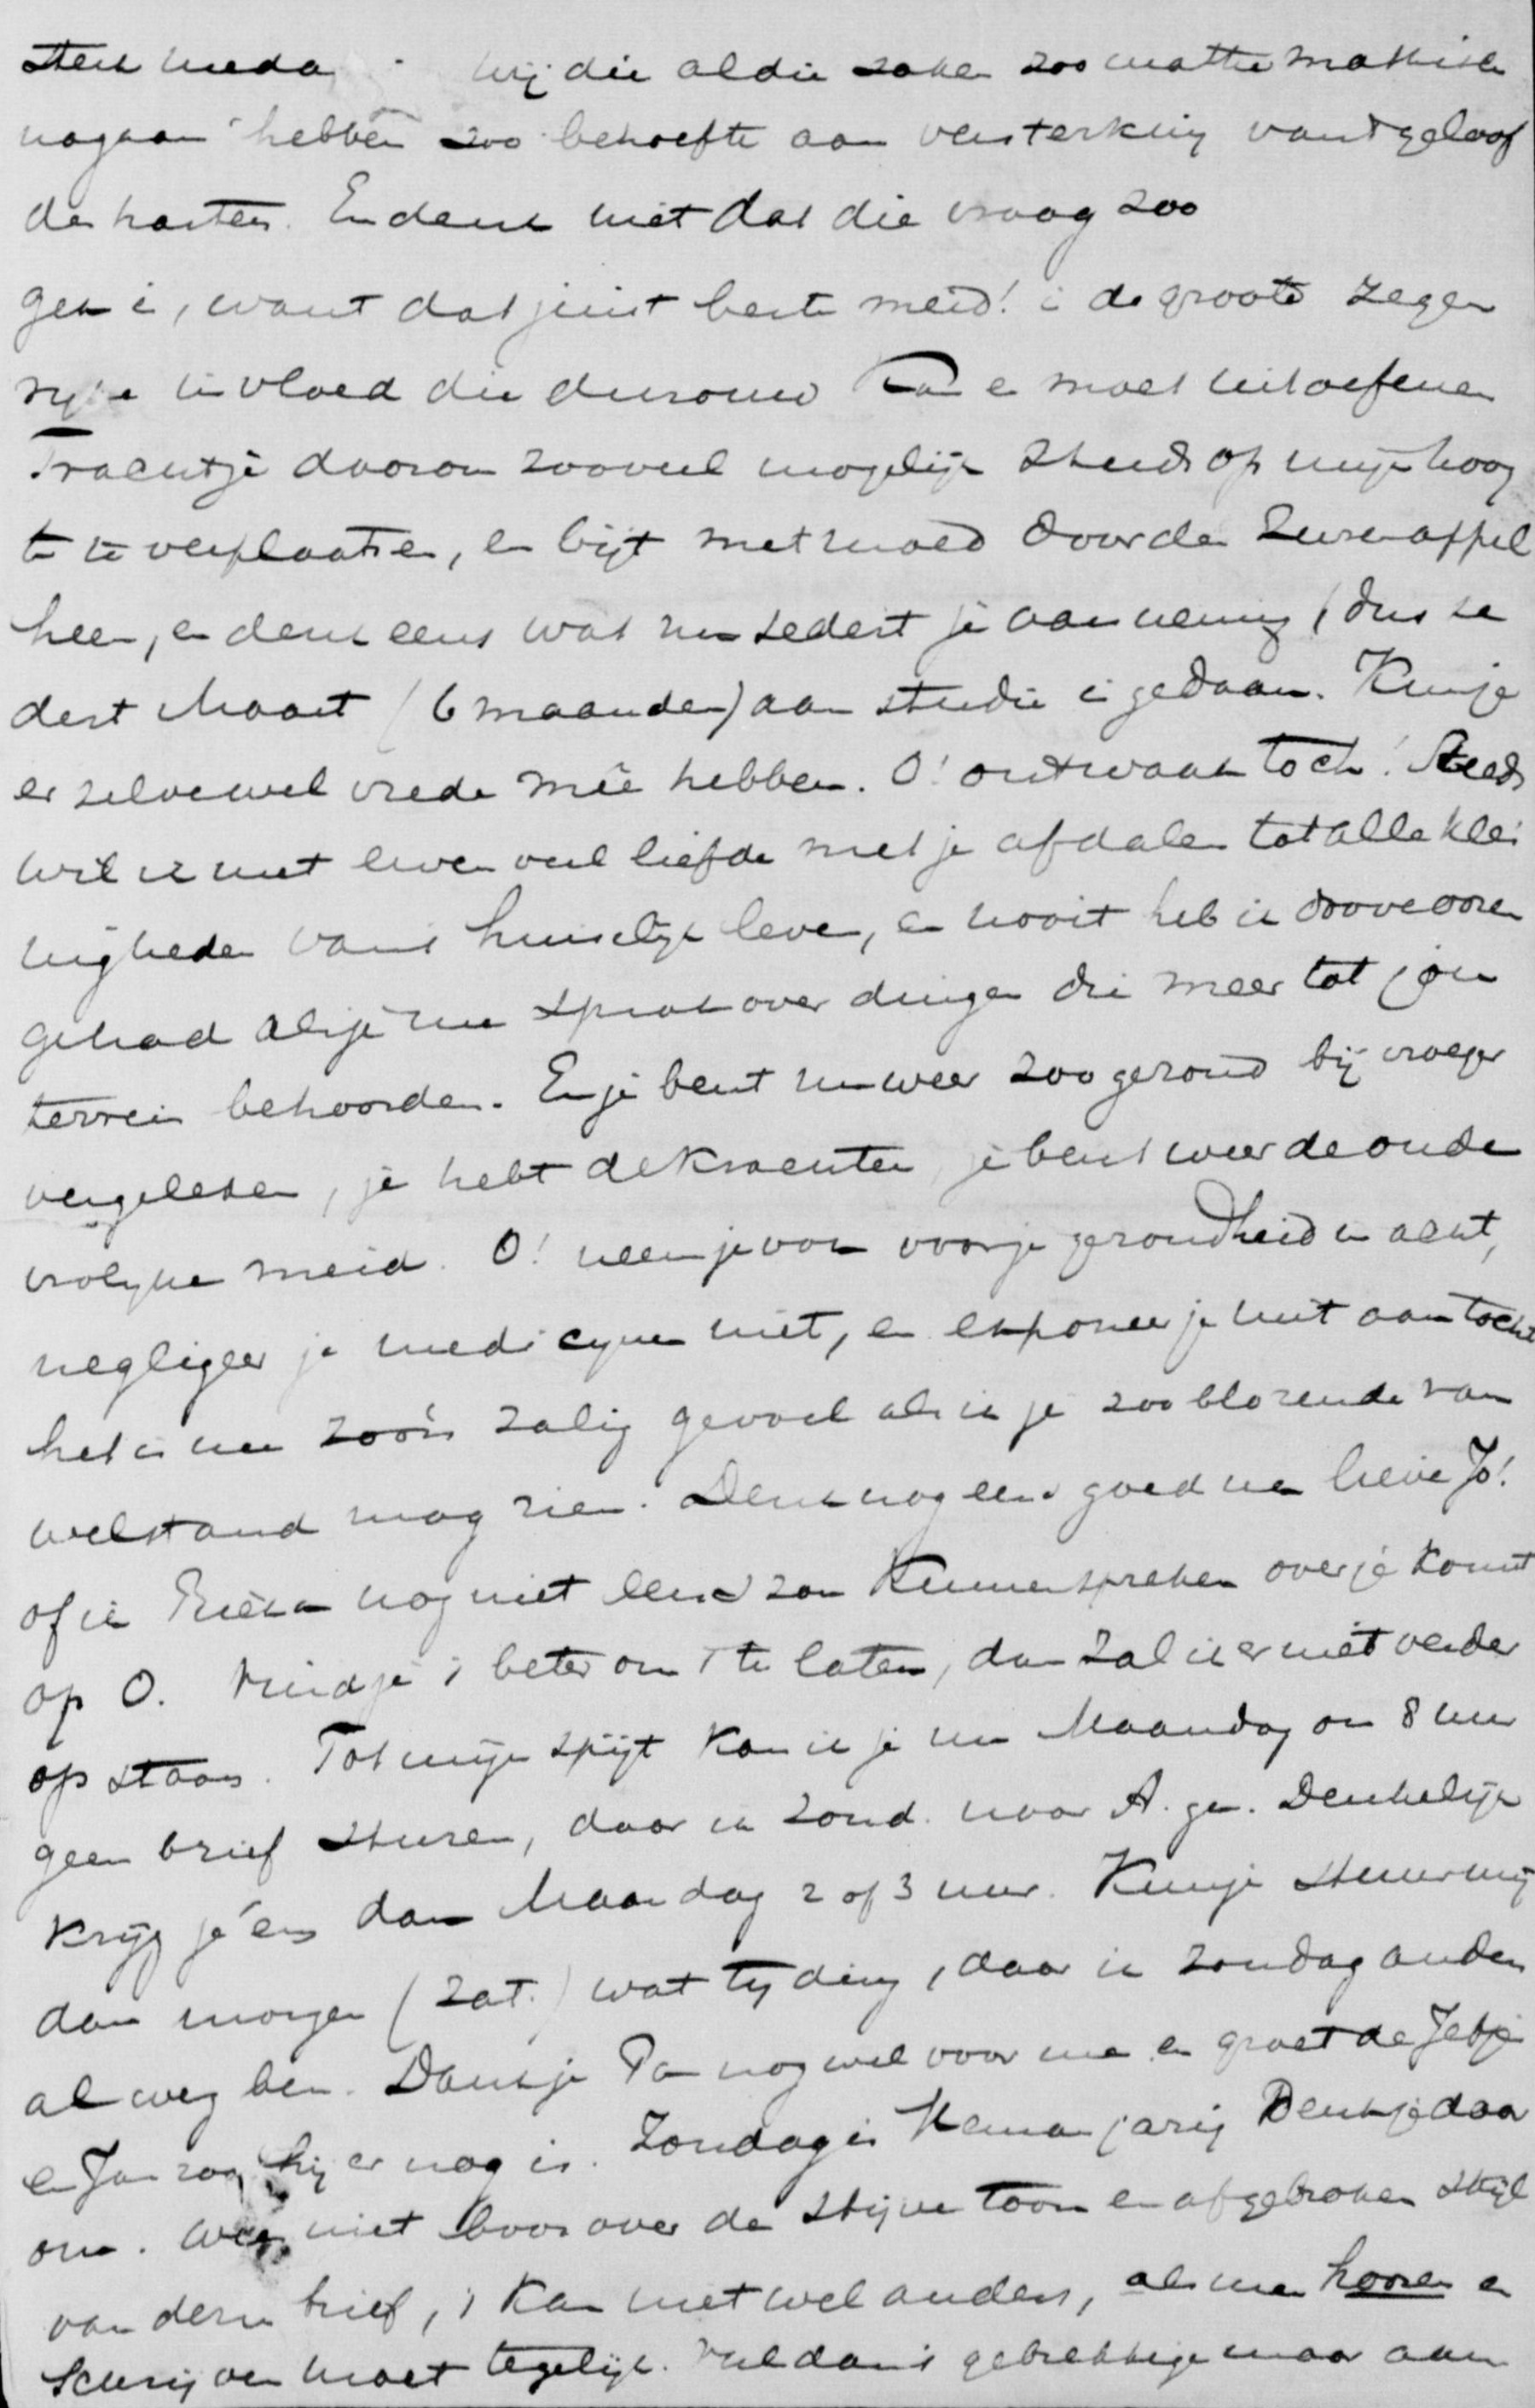 sterk meda wij die al die zaken zoo mathematisch
nagaan hebben zoo behoefte aan versterking van 't geloof
des harten. En denk niet dat die vraag zoo
gek is, want dat juist beste meid! is de groote zegen
rijke invloed die de vrouw kan en moet uitoefenen
Tracht je daarom zooveel mogelijk steeds op mijn hoog
te te verplaatsen, en bijt met moed door den zuren appel
heen, en denk eens wat nu sedert je aanneming (dus se
dert Maart (6 maanden) aan studie is gedaan. Kun je
er zelve wel vrede meê hebben. O! ontwaak toch! Steeds
wil ik met even veel liefde met je afdalen tot alle klei
nigheden van 't huiselijk leven, en nooit heb ik doove ooren
gehad als je me sprak over dingen die meer tot jou
terrein behoorden. En je bent nu weer zoo gezond bij vroeger
vergeleken, je hebt de krachten, je bent weer de oude
vrolijke meid. O! neem je ook voor je gezondheid in acht,
negligeer je medicynen niet, en exponeer je niet aan tocht
het is me zoo'n zalig gevoel als ik je zoo blozende van
welstand mag zien. Denk nog eens goed na lieve Jo!
of ik nog niet eens zou kunnen spreken over je komst
op O. Vind je 't beter om 't te laten, dan zal ik er niet verder
op staan. Tot mijn spijt kan ik je nu Maandag om 8 uur
geen brief sturen, daar ik Zond. naar A. ga. Denkelijk
krijg je 'em dan Maandag 2 of 3 uur. Kun je stuur mij
dan morgen (Zat.) wat tijding, daar ik Zondag anders
al weg ben. Dank je Pa nog wel voor me en groet de Jetje
en Jan zoo hij er nog is. Zondag is Mama jarig Denk je daar
om. Wees niet boos over de stijve toon en afgebroken stijl
van dezen brief, 't kan niet wel anders, als men hooren en
schrijven moet tegelijk. Vul dan 't gebrekkige maar aan